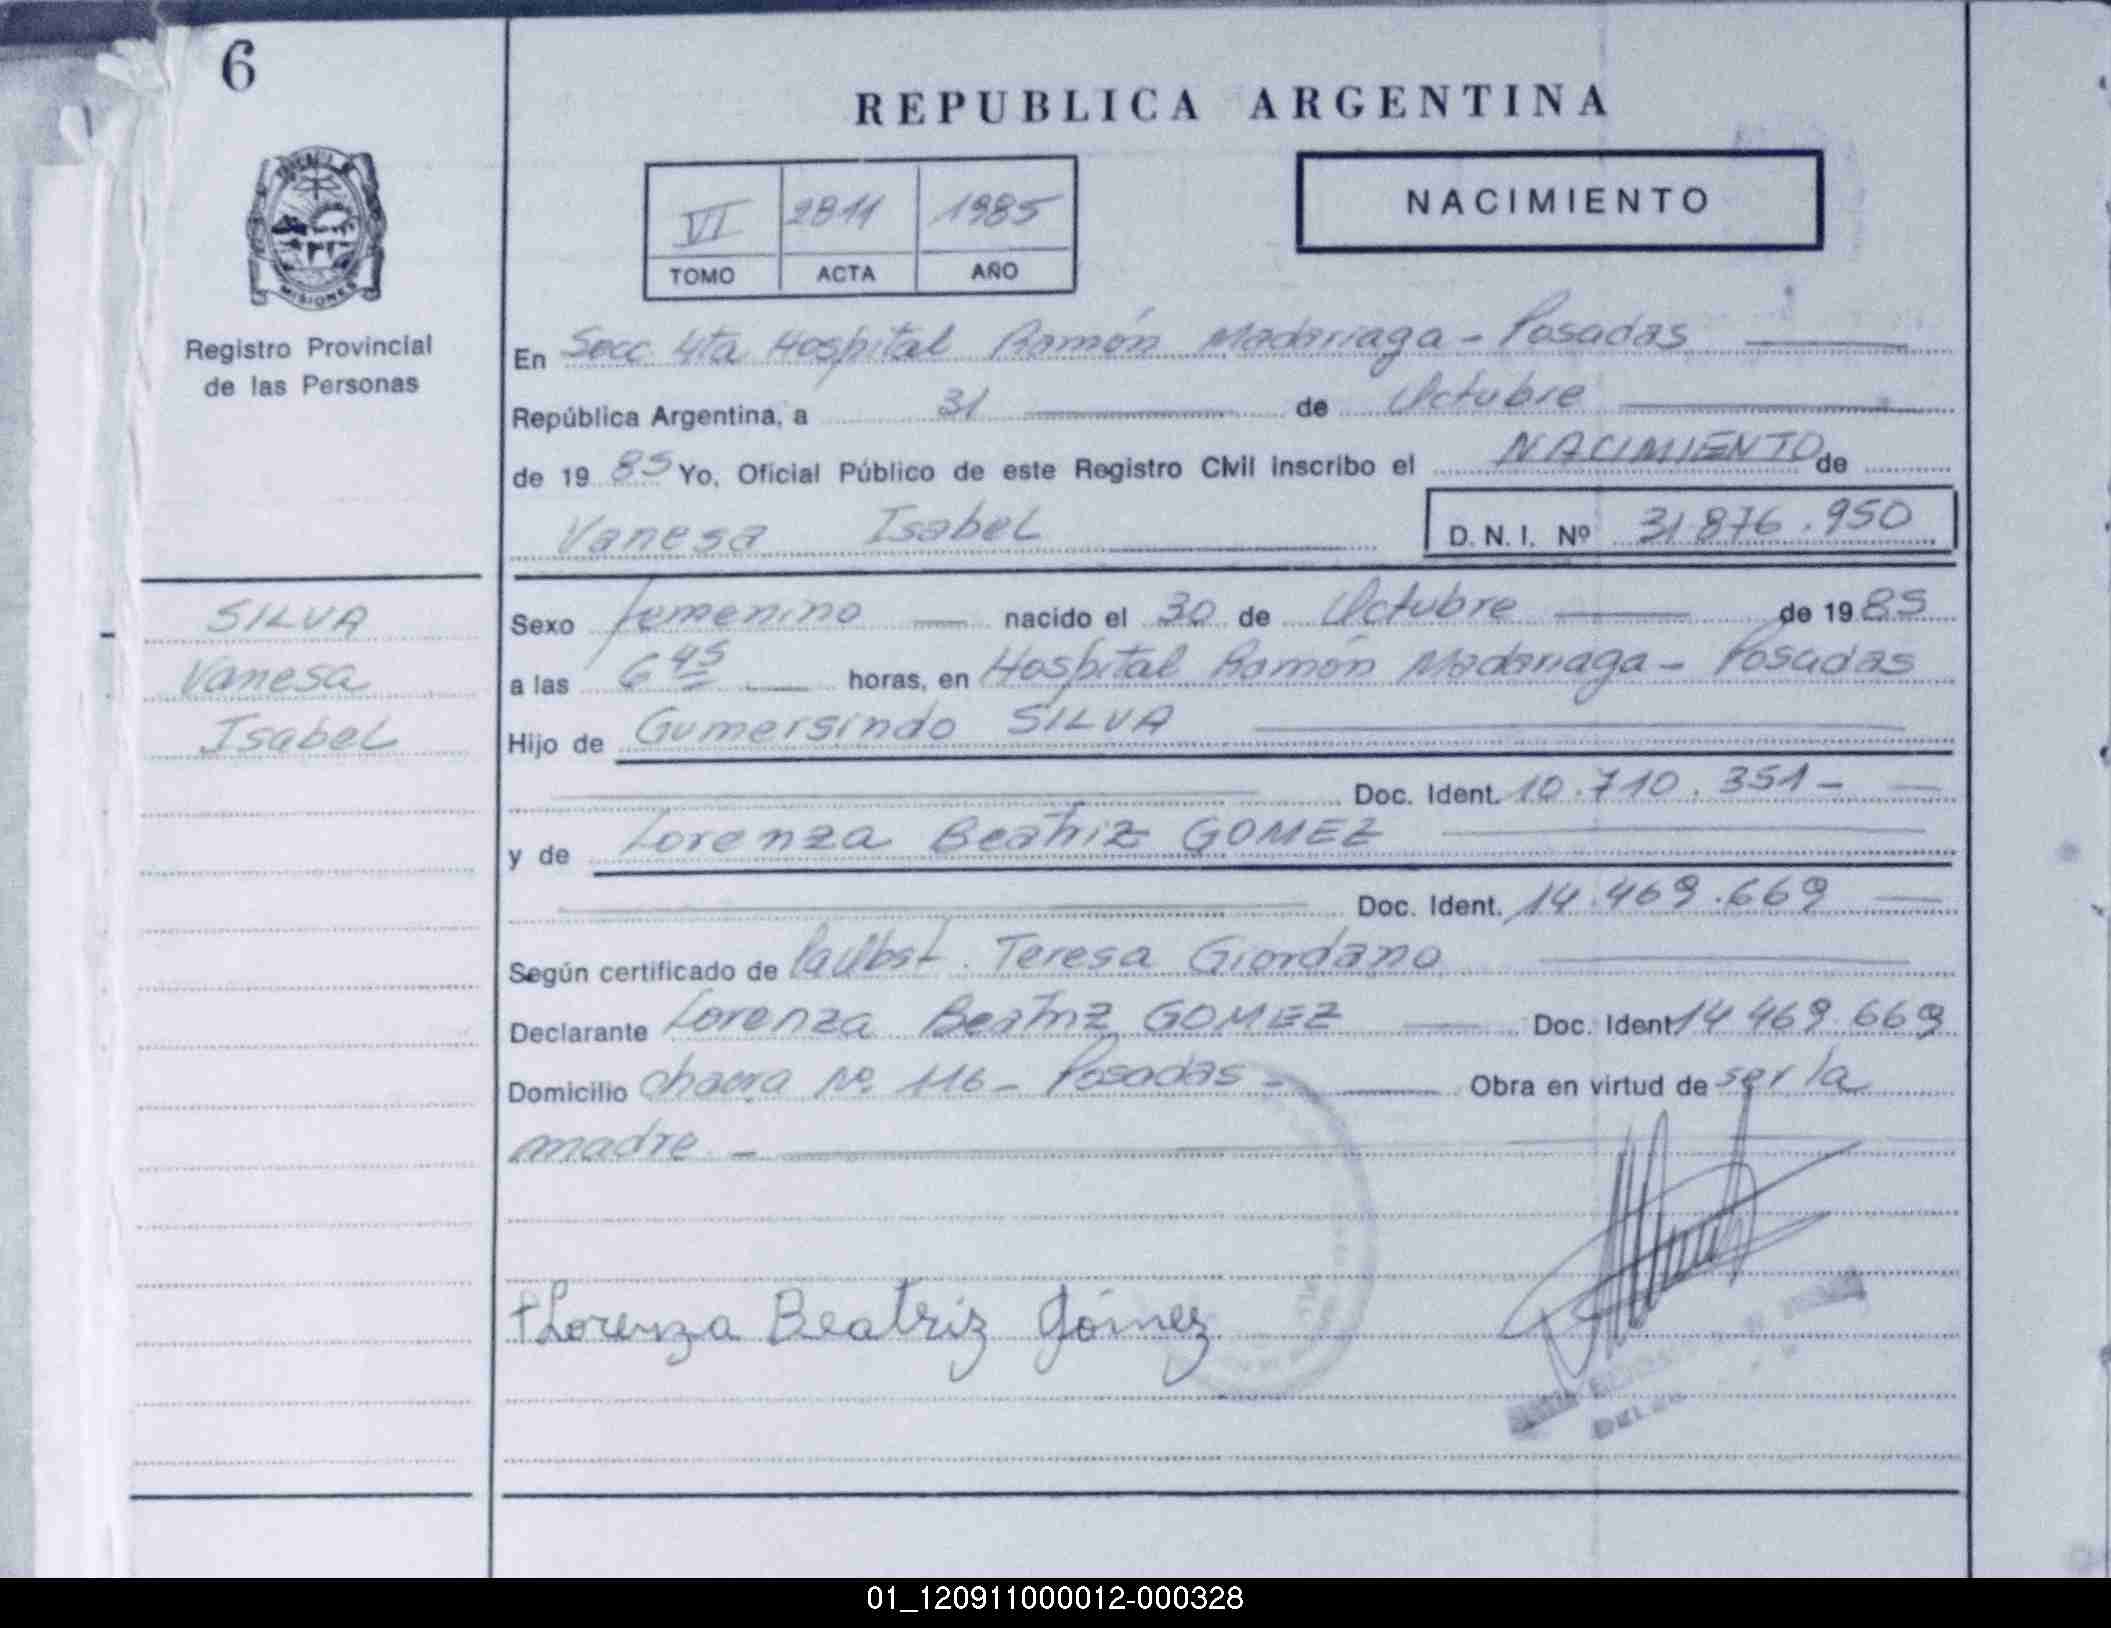 6
REPUBLICA ARGENTINA
VI 2811 1985
TOMO ACTA AÑO
NACIMIENTO
MISIONES
Registro Provincial
de las Personas
En Secc 4ta Hospital Ramón Madariaga - Posadas
República Argentina, a 31 de Octubre
de 1985 Yo, Oficial Público de este Registro Civil inscribo el NACIMIENTO de
Vanesa Isabel D. N. I. Nº 31 876.950
SILVA
Vanesa
Isabel
Sexo femenino nacido el 30 de Octubre de 1985
a las 6 45 horas, en Hospital Ramón Madariaga - Posadas
Hijo de Gumersindo SILVA
Doc. Ident. 10.710.351-
y de Lorenza Beatriz GOMEZ
Doc. Ident. 14.469.669
Según certificado de Teresa Giordano
Declarante Lorenza Beatriz GOMEZ Doc. Ident 14 469.669
Domicilio chacra Nº 116 - Posadas - Obra en virtud de ser la
madre -
Lorenza Beatriz Gómez
01_120911000012-000328